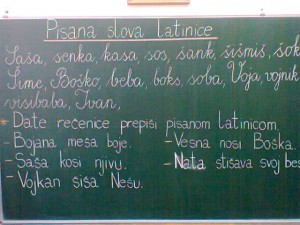 Pisana slova latinice
Saša, senka, kasa, sos, šank, šišmiš, šok
Šime, Boško, beba, boks, soba, Voja, vojnik
visibaba, Ivan,
* Date rečenice prepiši pisanom latinicom.
- Bojana meša boje.
- Vesna nosi Boška.
- Saša kosi njivu.
- Nata stišava svoj bes
- Vojkan šiša Nešu.